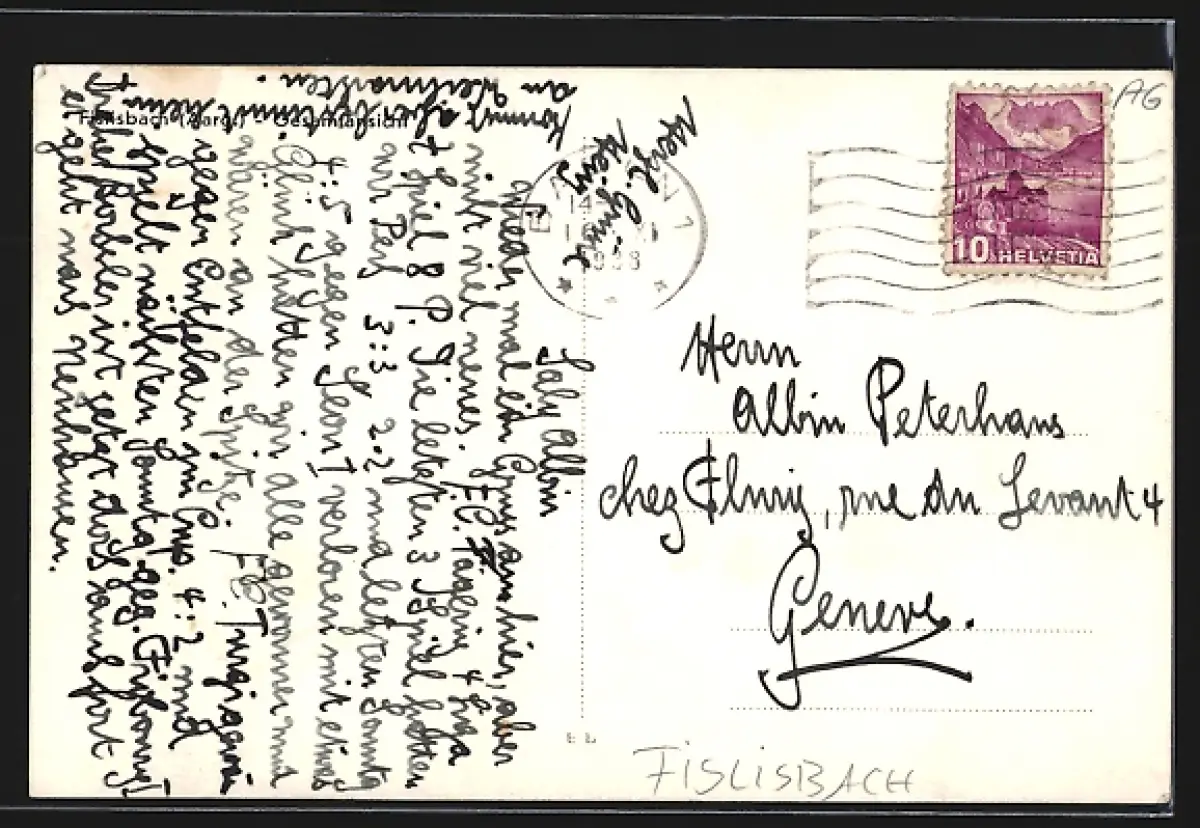 Fislisbach (Aarg.) Gesamtansicht
Saly Albin
wieder mal ein Gruss von hier, aber
nicht viel neues. F.C. Tägerig 4 Sp.
4 Spiel 8 P. Die letzten 3 Spiel hatten
wir Pech 3:3 2:2 und letzten Sonntag
4:5 gegen Seon I verloren mit etwas
Glück hätten wir alle gewonnen und
wären an der Spitze. F.C. Turgi gewann
gegen Entfelden im Cup. 4:2 und
spielt nächsten Sonntag geg. Fribourg I
ist jetzt dort
er geht nach Neuhausen.
kommt aber bestimmt heim
an Weihnachten.
Herzl. Grüsse
Herrn
Albin Peterhans
chez Flury, rue du Levant 4
Genève.
10 HELVETIA
AG
FISLISBACH